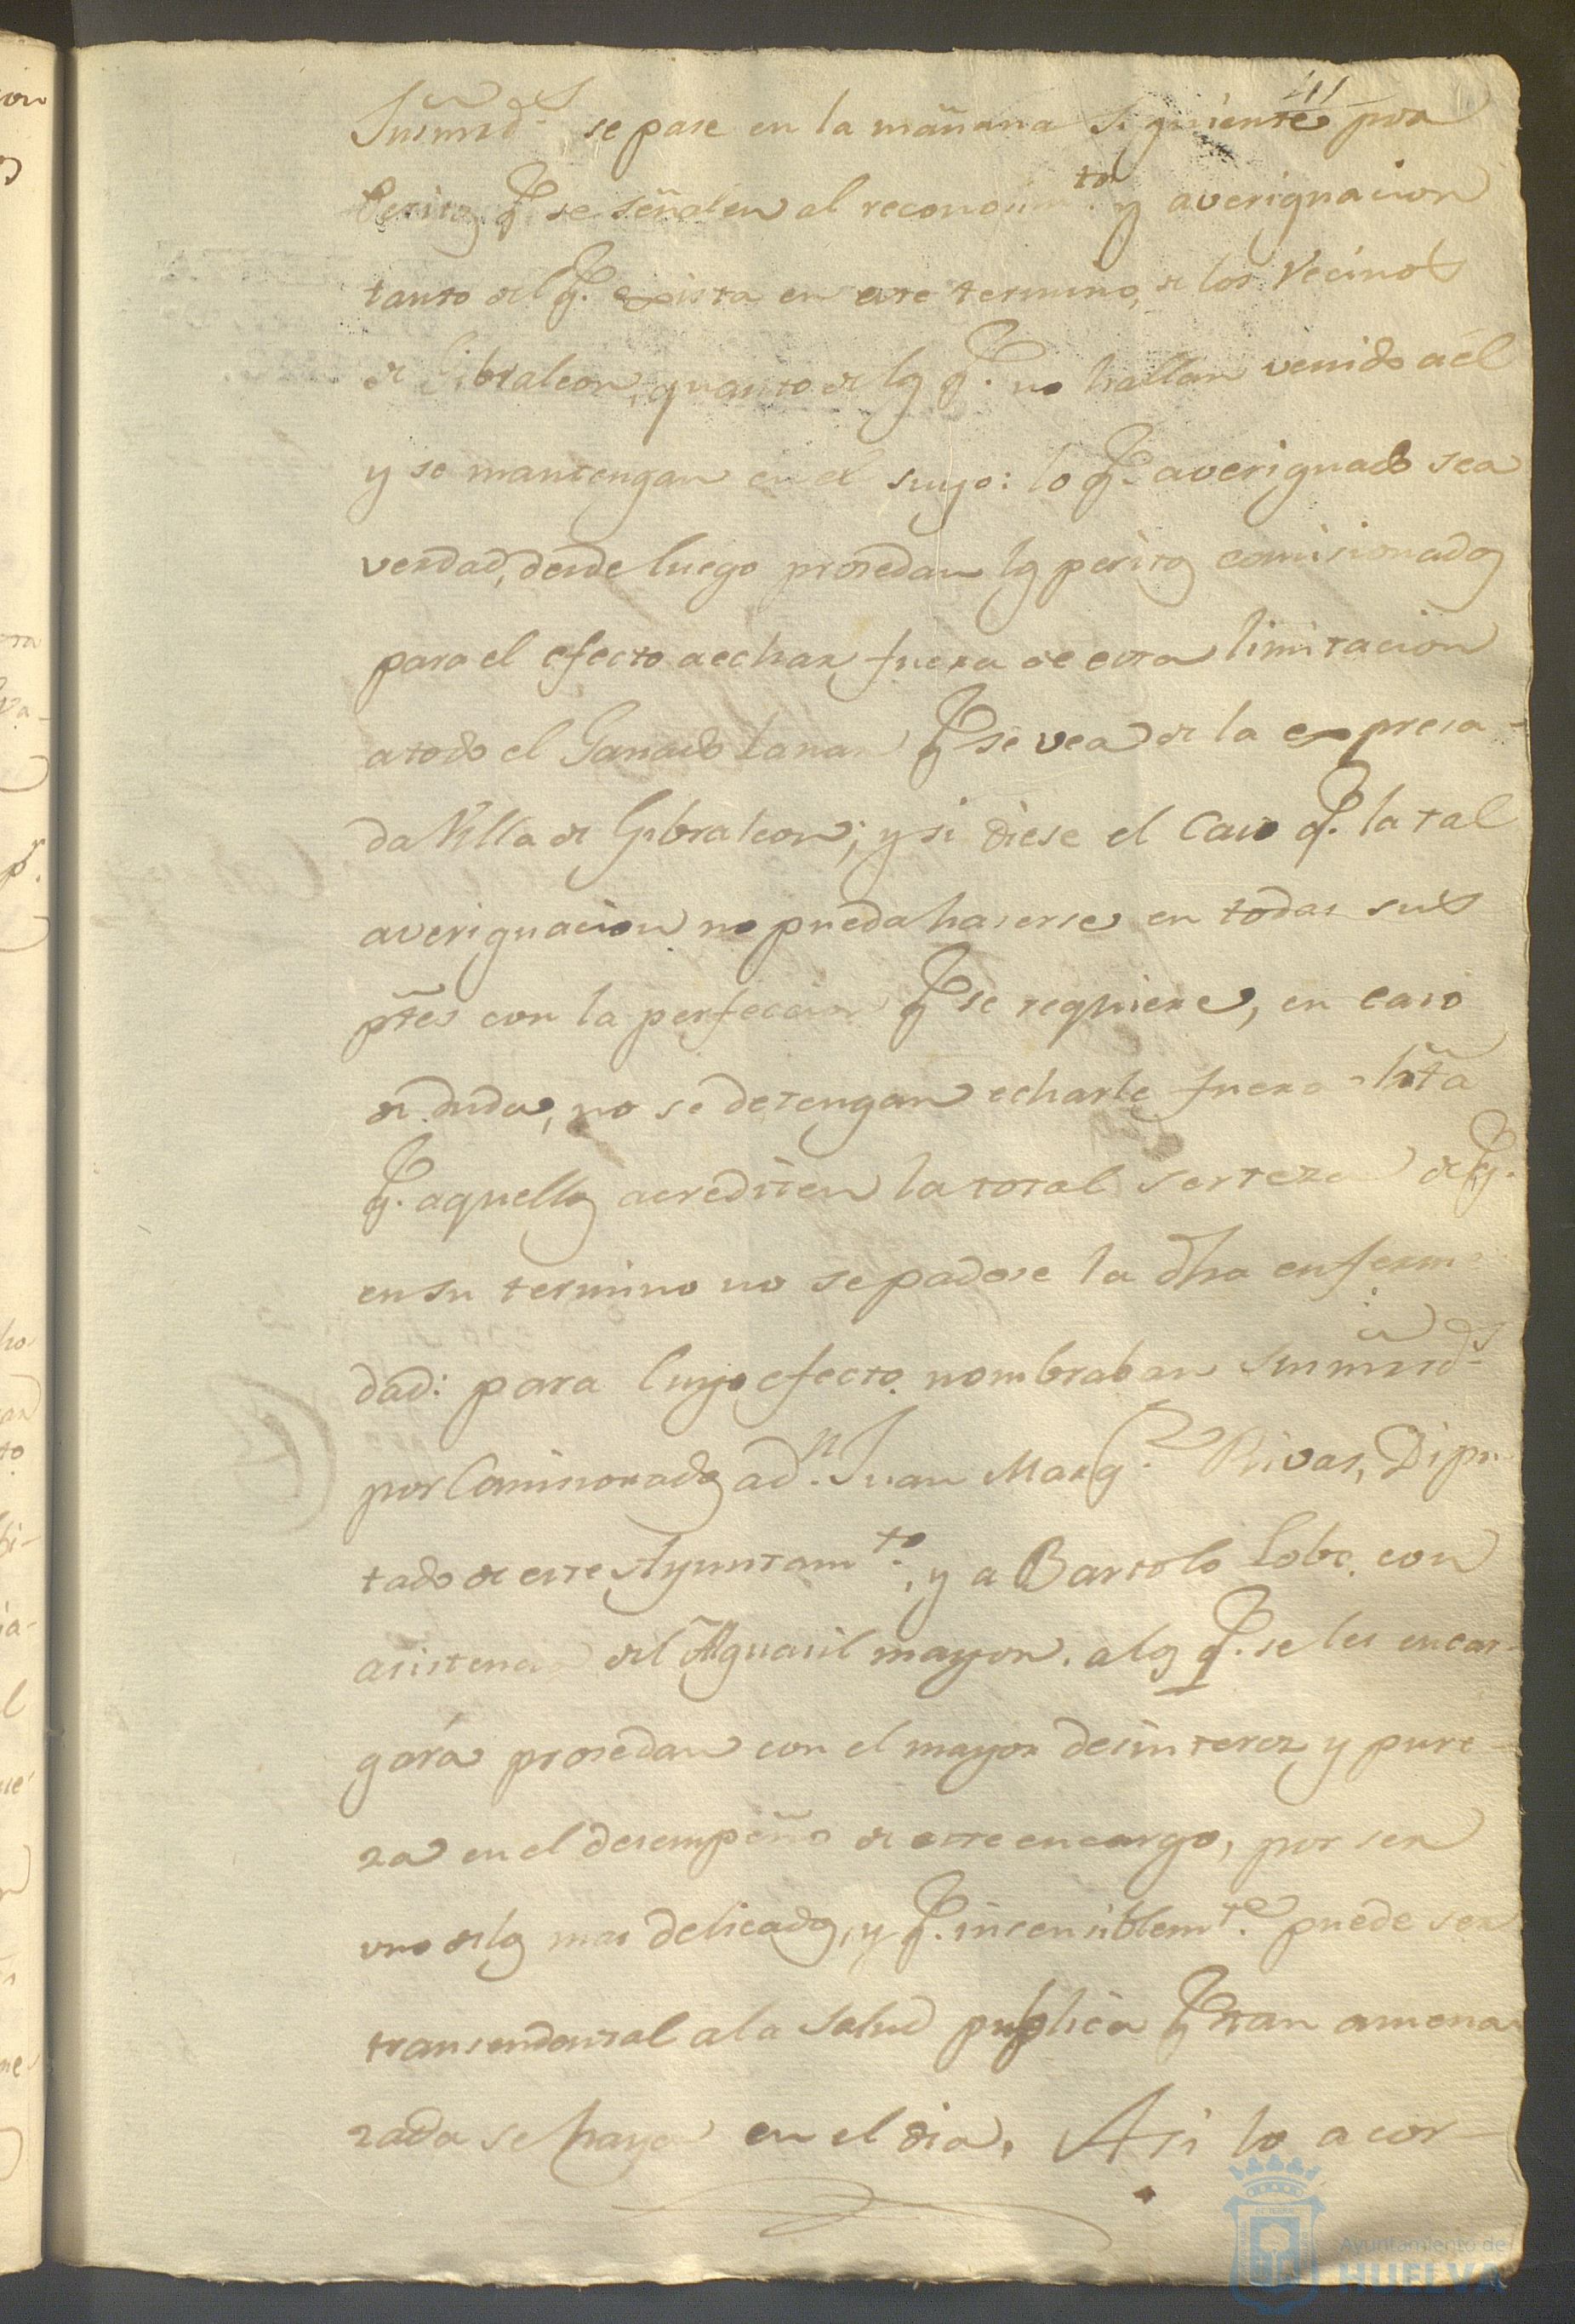 111
Sus mrds. se pase en la mañana siguiente por
Peritos q.e se señalen al reconosim.to y averiguacion
tanto del q.e exista en este termino, de los Vecinos
de Gibraleon, quanto de los q.e no hallan venido a él
y se mantengan en el suyo: lo q.e averiguado sea
verdad, desde luego prosedan los peritos comisionados
para el efecto a echar fuera de esta limitacion
a todo el Ganado Lanar q.e se vea de la expresa-
da Villa de Gibraleon; y si diese el Caso q.e la tal
averiguacion no pueda haserse en todas sus
ptes con la perfeccion q.e se requiere, en caso
de duda, no se detengan echarle fuera hta
q.e aquellos acrediten la total serteza de q.e
en su termino no se padese la dha enferme
dad: para cuyo efecto nombraban Sus mrds.
por Comisionados a d.n Juan Marq.z Rivas, Dipu
tado de este Ayuntam.to, y a Bartolo Lobo, con
asistencia del Alguasil mayor. a los q.e se les encar-
gará prosedan con el mayor desinterez y pure-
za en el desempeño de este encargo, por ser
uno de los mas delicados, y q.e insensiblem.te puede ser
transendental a la salud publica q.e tan amena
zada se haya en el dia. Asi lo acor-
Ayuntamiento de
HUELVA